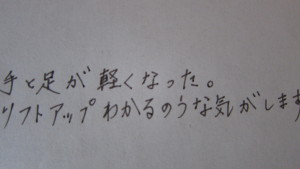 手と足が軽くなった。
リフトアップわかるのうな気がします